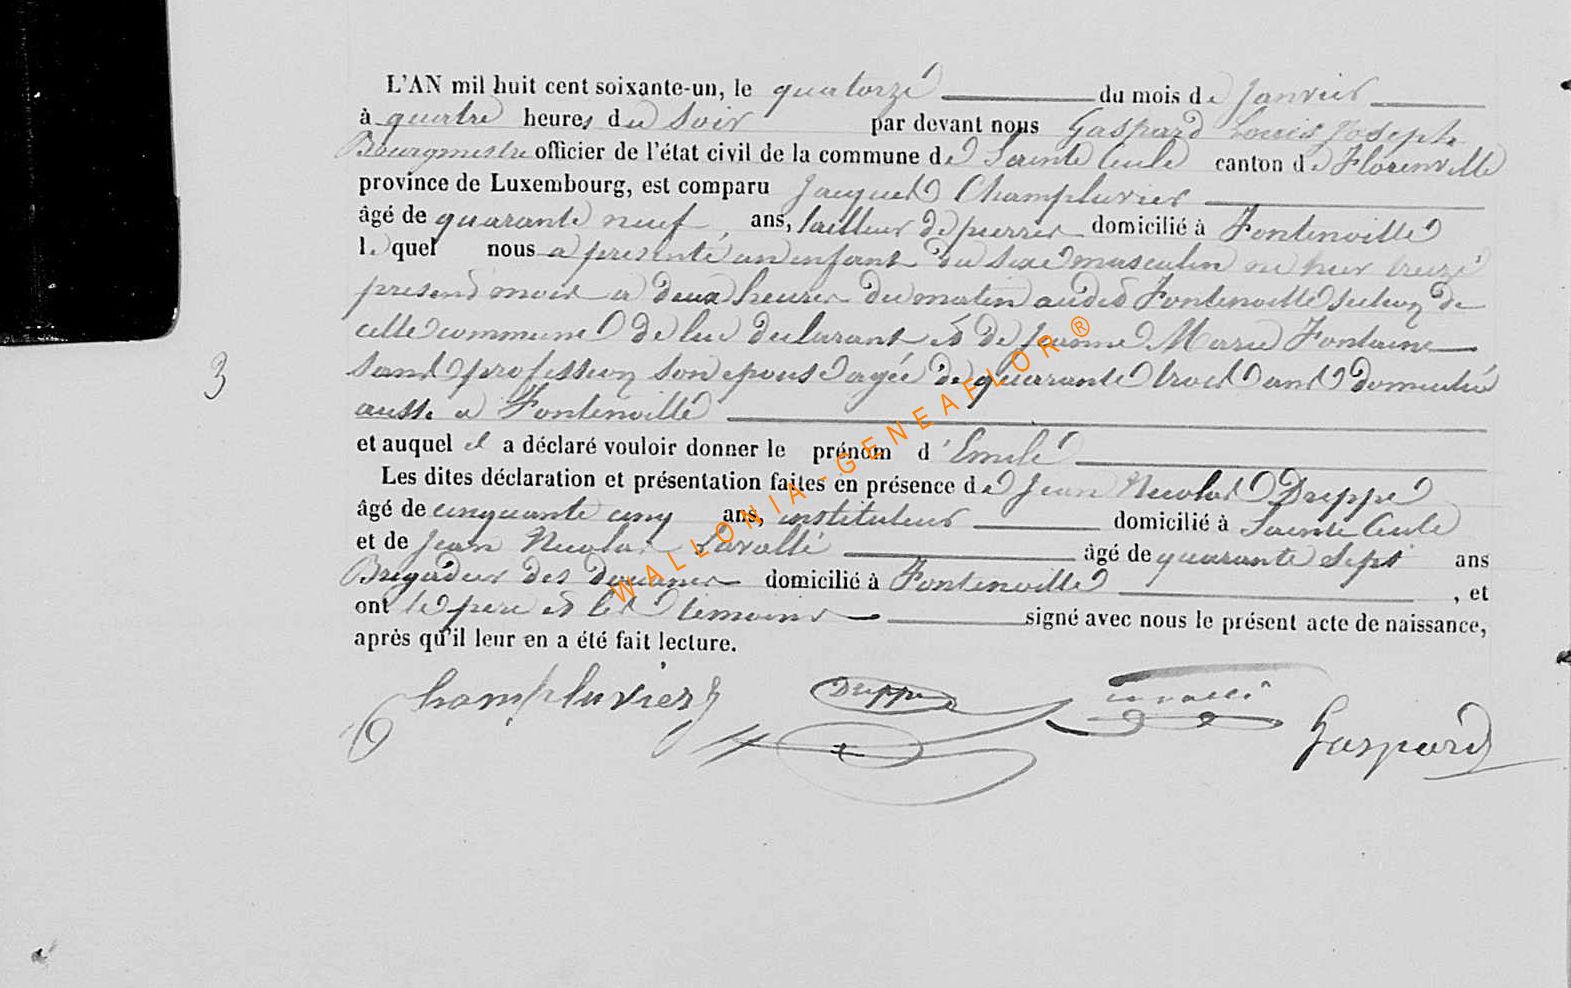 L'AN mil huit cent soixante-un, le quatorze du mois de Janvier
à quatre heures du Soir par devant nous Gaspard Louis Joseph
Bourgmestre officier de l'état civil de la commune de Sainte Cecile canton de Florenville
province de Luxembourg, est comparu Jacques Champluvier
âgé de quarante neuf, ans, tailleur de pierres domicilié à Fontenoille
lequel nous a presenté un enfant du sexe masculin né hier treize
present mois a deux heures du matin audit Fontenoille section de
cette commune de lui declarant et de Jeanne Marie Fontaine
sans profession son epouse agée de quarante trois ans domicilié
aussi a Fontenoille
3
et auquel il a déclaré vouloir donner le prénom d'Emile
Les dites déclaration et présentation faites en présence de Jean Nicolas Dreppe
âgé de cinquante cinq ans, instituteur domicilié à Sainte Cecile
et de Jean Nicolas Lavallé âgé de quarante Sept ans
Brigadier des douanes domicilié à Fontenoille, et
ont le pere et les temoins signé avec nous le présent acte de naissance,
après qu'il leur en a été fait lecture.
Champluvier Dreppe Lavallé Gaspard
WALLONIA-GENEAFLOR®